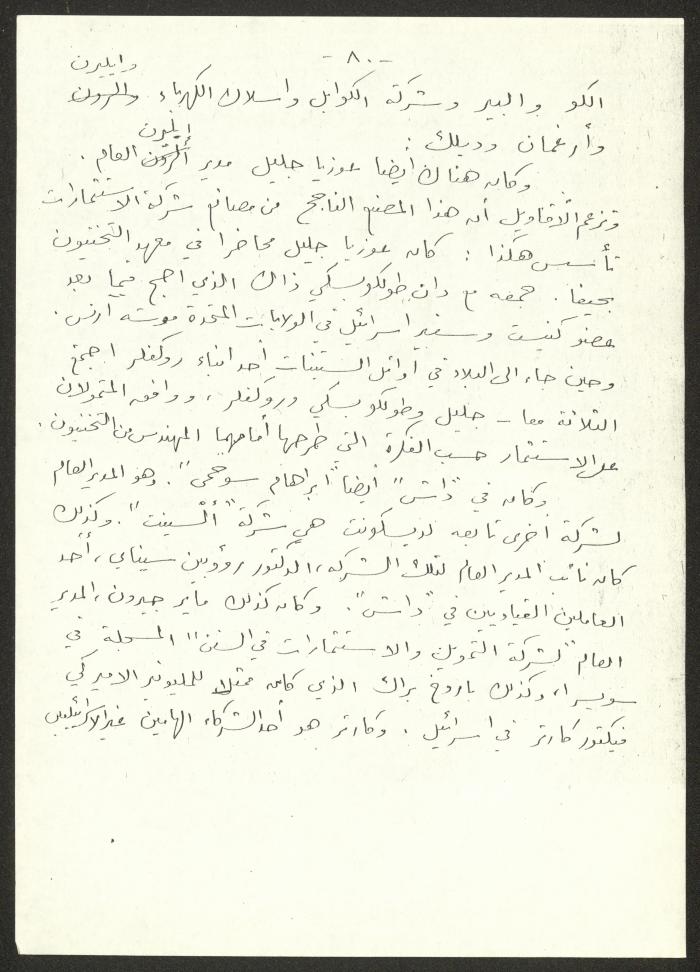 -٨٠-
وايليرن
الكو والبير وشركة الكوابل واسلاك الكهرباء
وأرغمان وديلك :
ايليرن
وكان هناك ايضا عوزيا جليل مدير العام .
وتزعم الأقاويل أن هذا المصنع الناجح من مصانع شركة الاستثمارات
تأسس هكذا : كان عوزيا جليل محاضرا في معهد التخنيون
بحيفا . جمعه مع دان طولكوبسكي ذاك الذي اصبح فيما بعد
عضو كنيست وسفير اسرائيل في الولايات المتحدة موشه ارنس .
وحين جاء الى البلاد في أوائل الستينات أحد ابناء روكفلر اجتمع
الثلاثة معا - جليل وطولكوبسكي وروكفلر ، ووافق المتمولان
على الاستثمار حسب الفكرة التي طرحها أمامهما المهندس من التخنيون .
وكان في "داتس" أيضا "ابراهام سوحمي" . وهو المدير العام
لشركة أخرى تابعه لديسكونت هي شركة "ألسينت" . وكذلك
كان نائب المدير العام لتلك الشركه ، الدكتور رؤوبين سيناي ، أحد
العاملين القياديين في "داتس" . وكان كذلك ماير جيرون ، المدير
العام "لشركة التمويل والاستثمارات في السفن" المسجلة في
سويسرا ، وكذلك باروخ براك الذي كان ممثلا للمليونير الاميركي
فيكتور كارتر في اسرائيل . وكارتر هو أحد الشركاء الهامين غير الاسرائيليين